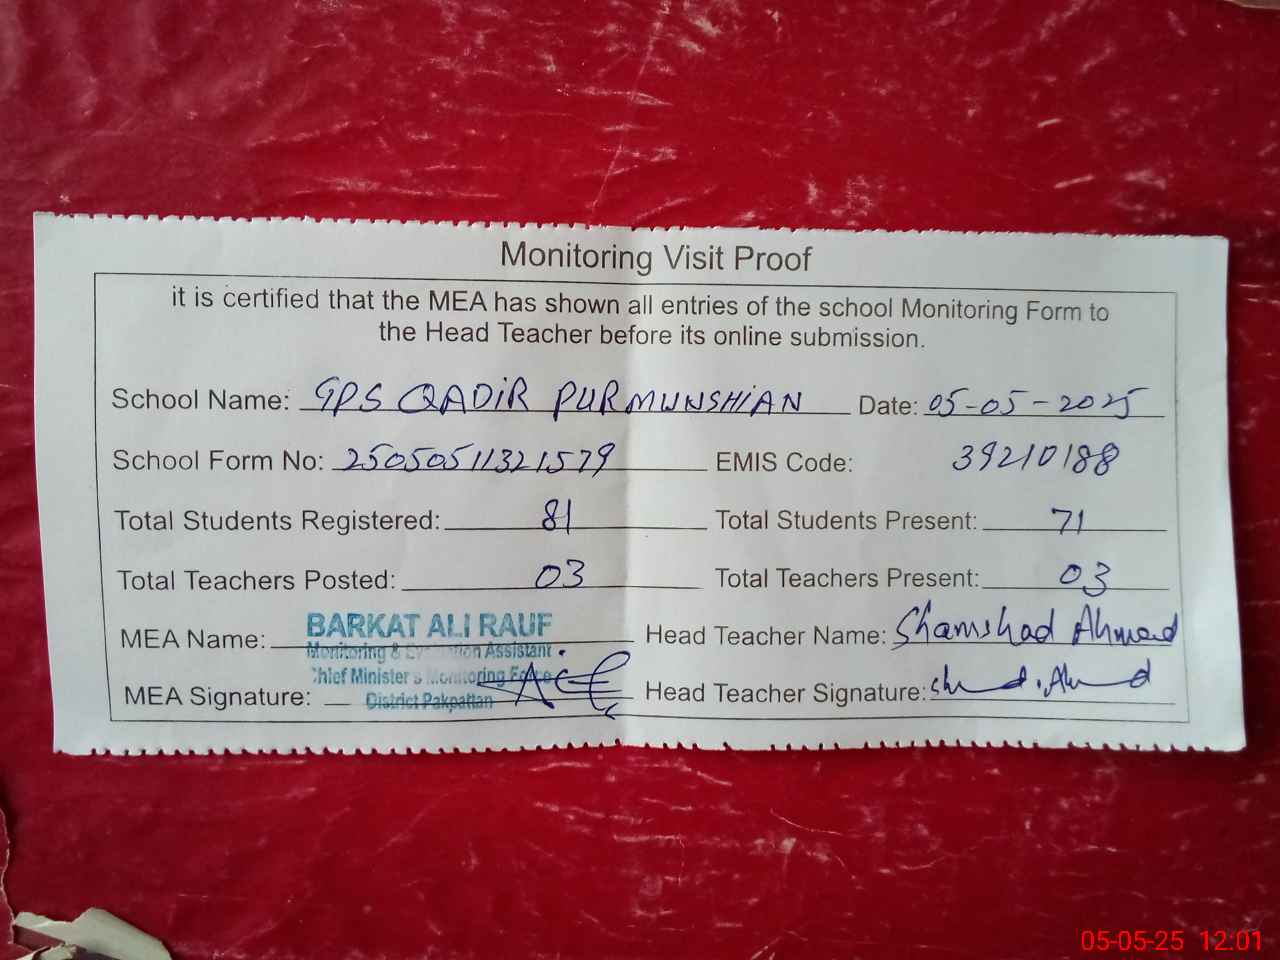 Monitoring Visit Proof
it is certified that the MEA has shown all entries of the school Monitoring Form to
the Head Teacher before its online submission.
School Name: GPS QADIR PUR MUNSHIAN Date: 05-05-2025
School Form No: 25050511321579 EMIS Code: 39210188
Total Students Registered: 81 Total Students Present: 71
Total Teachers Posted: 03 Total Teachers Present: 03
MEA Name: BARKAT ALI RAUF Head Teacher Name: Shamshad Ahmad
Monitoring & Evaluation Assistant
Chief Minister's Monitoring Force
MEA Signature: District Pakpattan Head Teacher Signature:
05-05-25 12:01